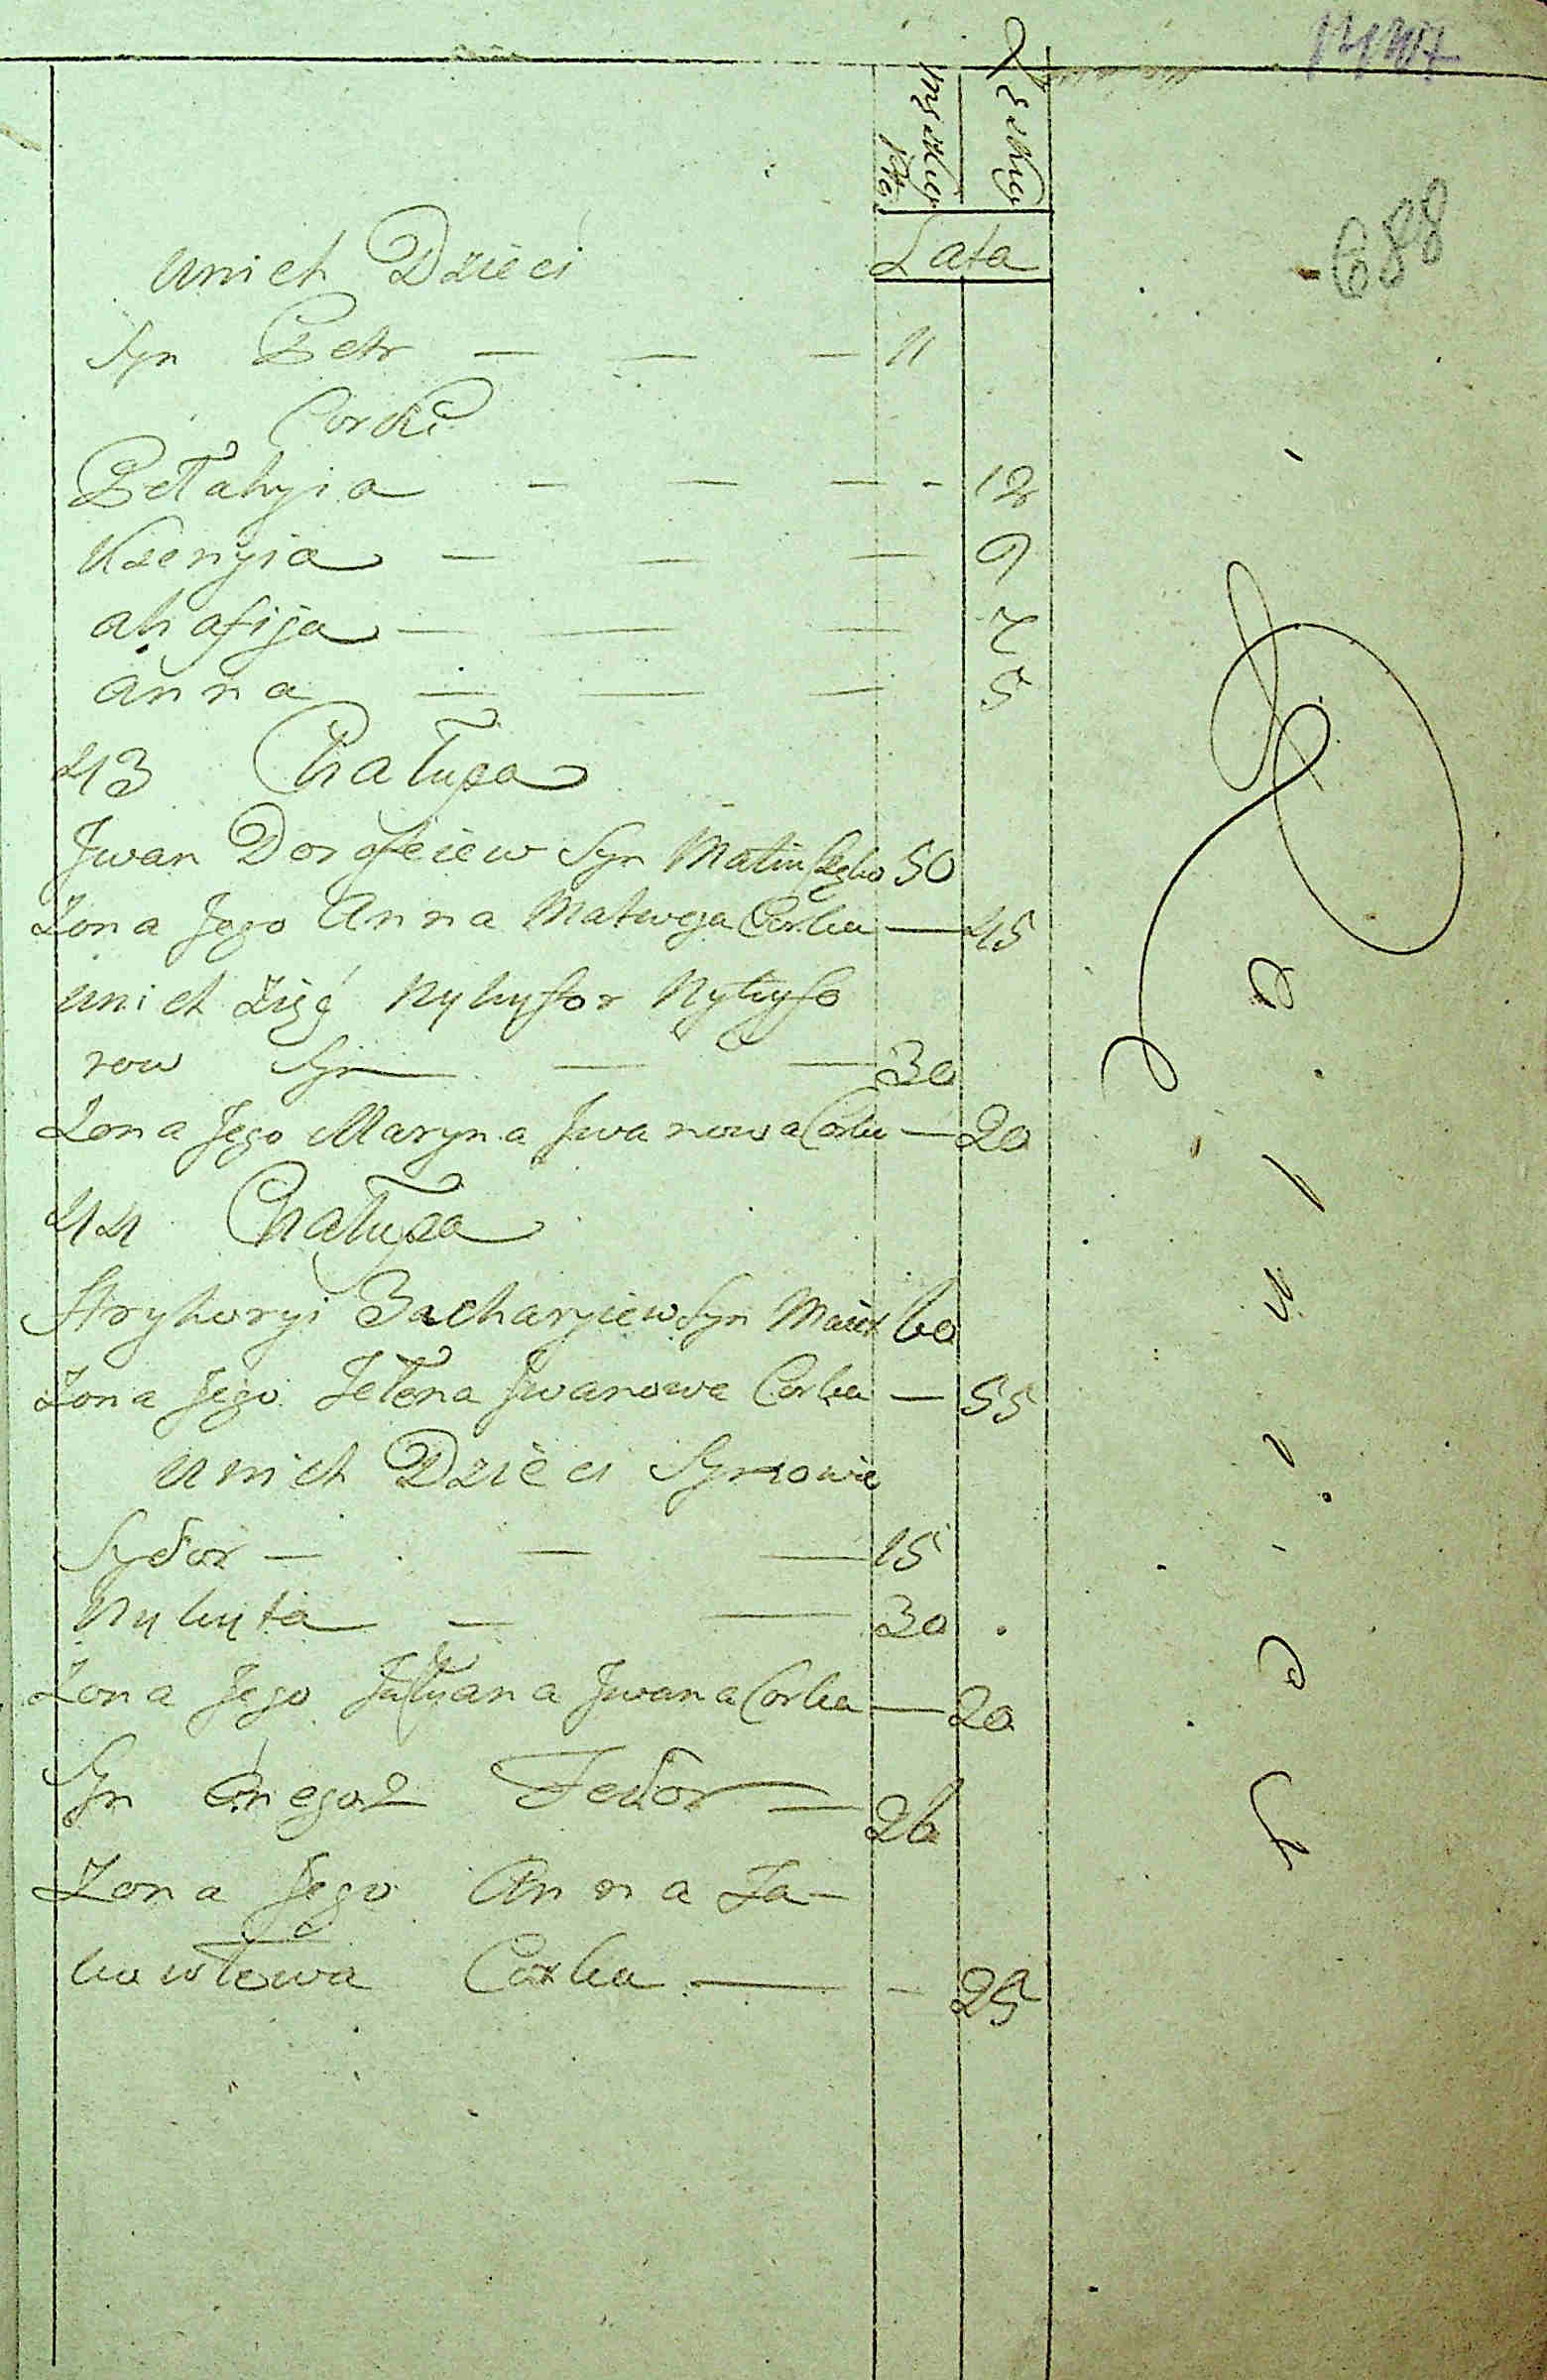 Męskiey Płci
Żeskiey
Lata
688
unich Dzieci
Syn Petr — — — 11
Corki
Petahyia — — — - 12
Ksenyia — — — 9
ahafija — — — 7
anna — — — 5
43 Chałupa
Jwan Dorofeiew Syn 50
Zona Jego Anna Matweja Corka — 45
unich Zięć Nykyfor Nykyfo
row Syn — — 30
Zona Jego Maryna Jwanowa Corka — 20
44 Chałupa
Hryhoryi Zacharyiew Syn 60
Zona Jego Jełena Jwanowa Corka — 55
unich Dzieci Synowie
Sydor — — — 15
Nykyta — — 30
Zona Jego Jułyana Jwana Corka — 20
Syn onegoż Fedor — 26
Zona Jego Anna Ja-
kowłewa Corka — - 25